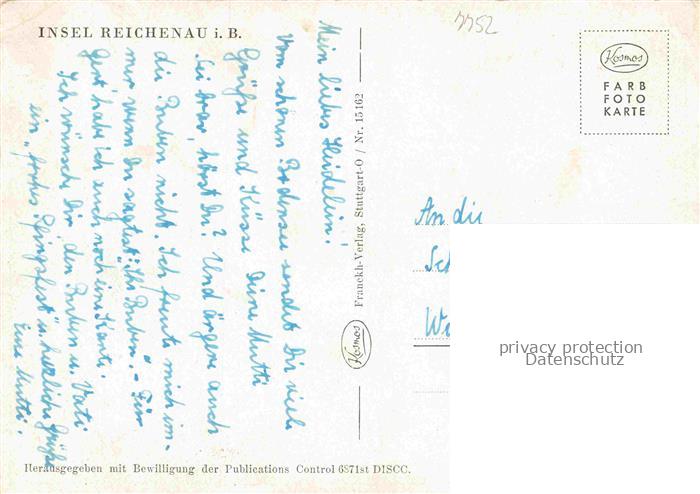 INSEL REICHENAU i. B.
7752
Kosmos
FARB
FOTO
KARTE
Mein liebes Heidelein!
Vom schönen Bodensee sendet Dir viele
Grüße und Küsse Deine Mutti
Sei brav, hörst Du? Und ärgere auch
die Buben nicht. Ich freute mich im-
mer wenn Du sagtest "Ihr Buben". - Für
Gert habe ich auch noch eine Karte.
Ich wünsche Dir, den Buben u. Vati
ein "frohes Pfingstfest" u. herzliche Grüße
Eure Mutti.
Kosmos
Franckh-Verlag, Stuttgart-O / Nr. 15162
An die
Sch
We
privacy protection
Datenschutz
Herausgegeben mit Bewilligung der Publications Control 6871st DISCC.